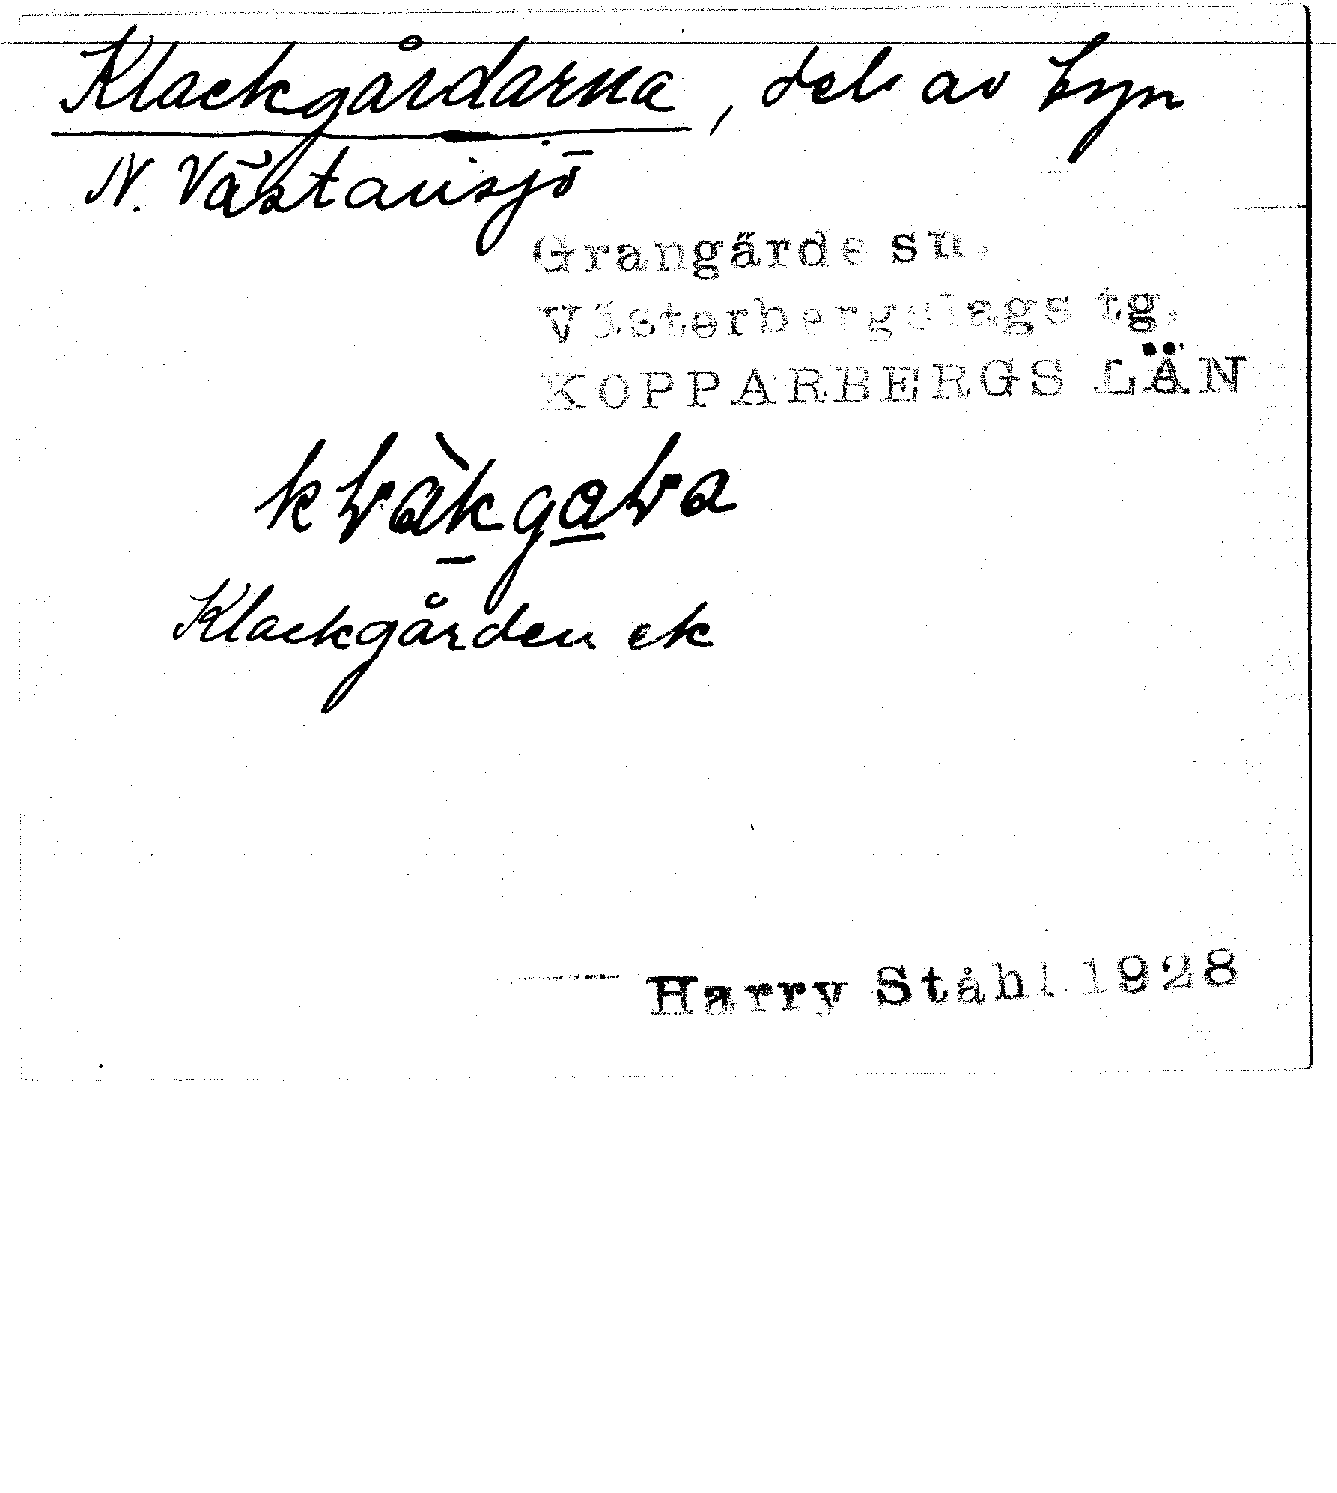 Klackgårdarna, del av byn
N. Västansjö
Grangärde sn.
Västerbergslags tg.
KOPPARBERGS LÄN
Klackgården ek
Harry Ståhl 1928